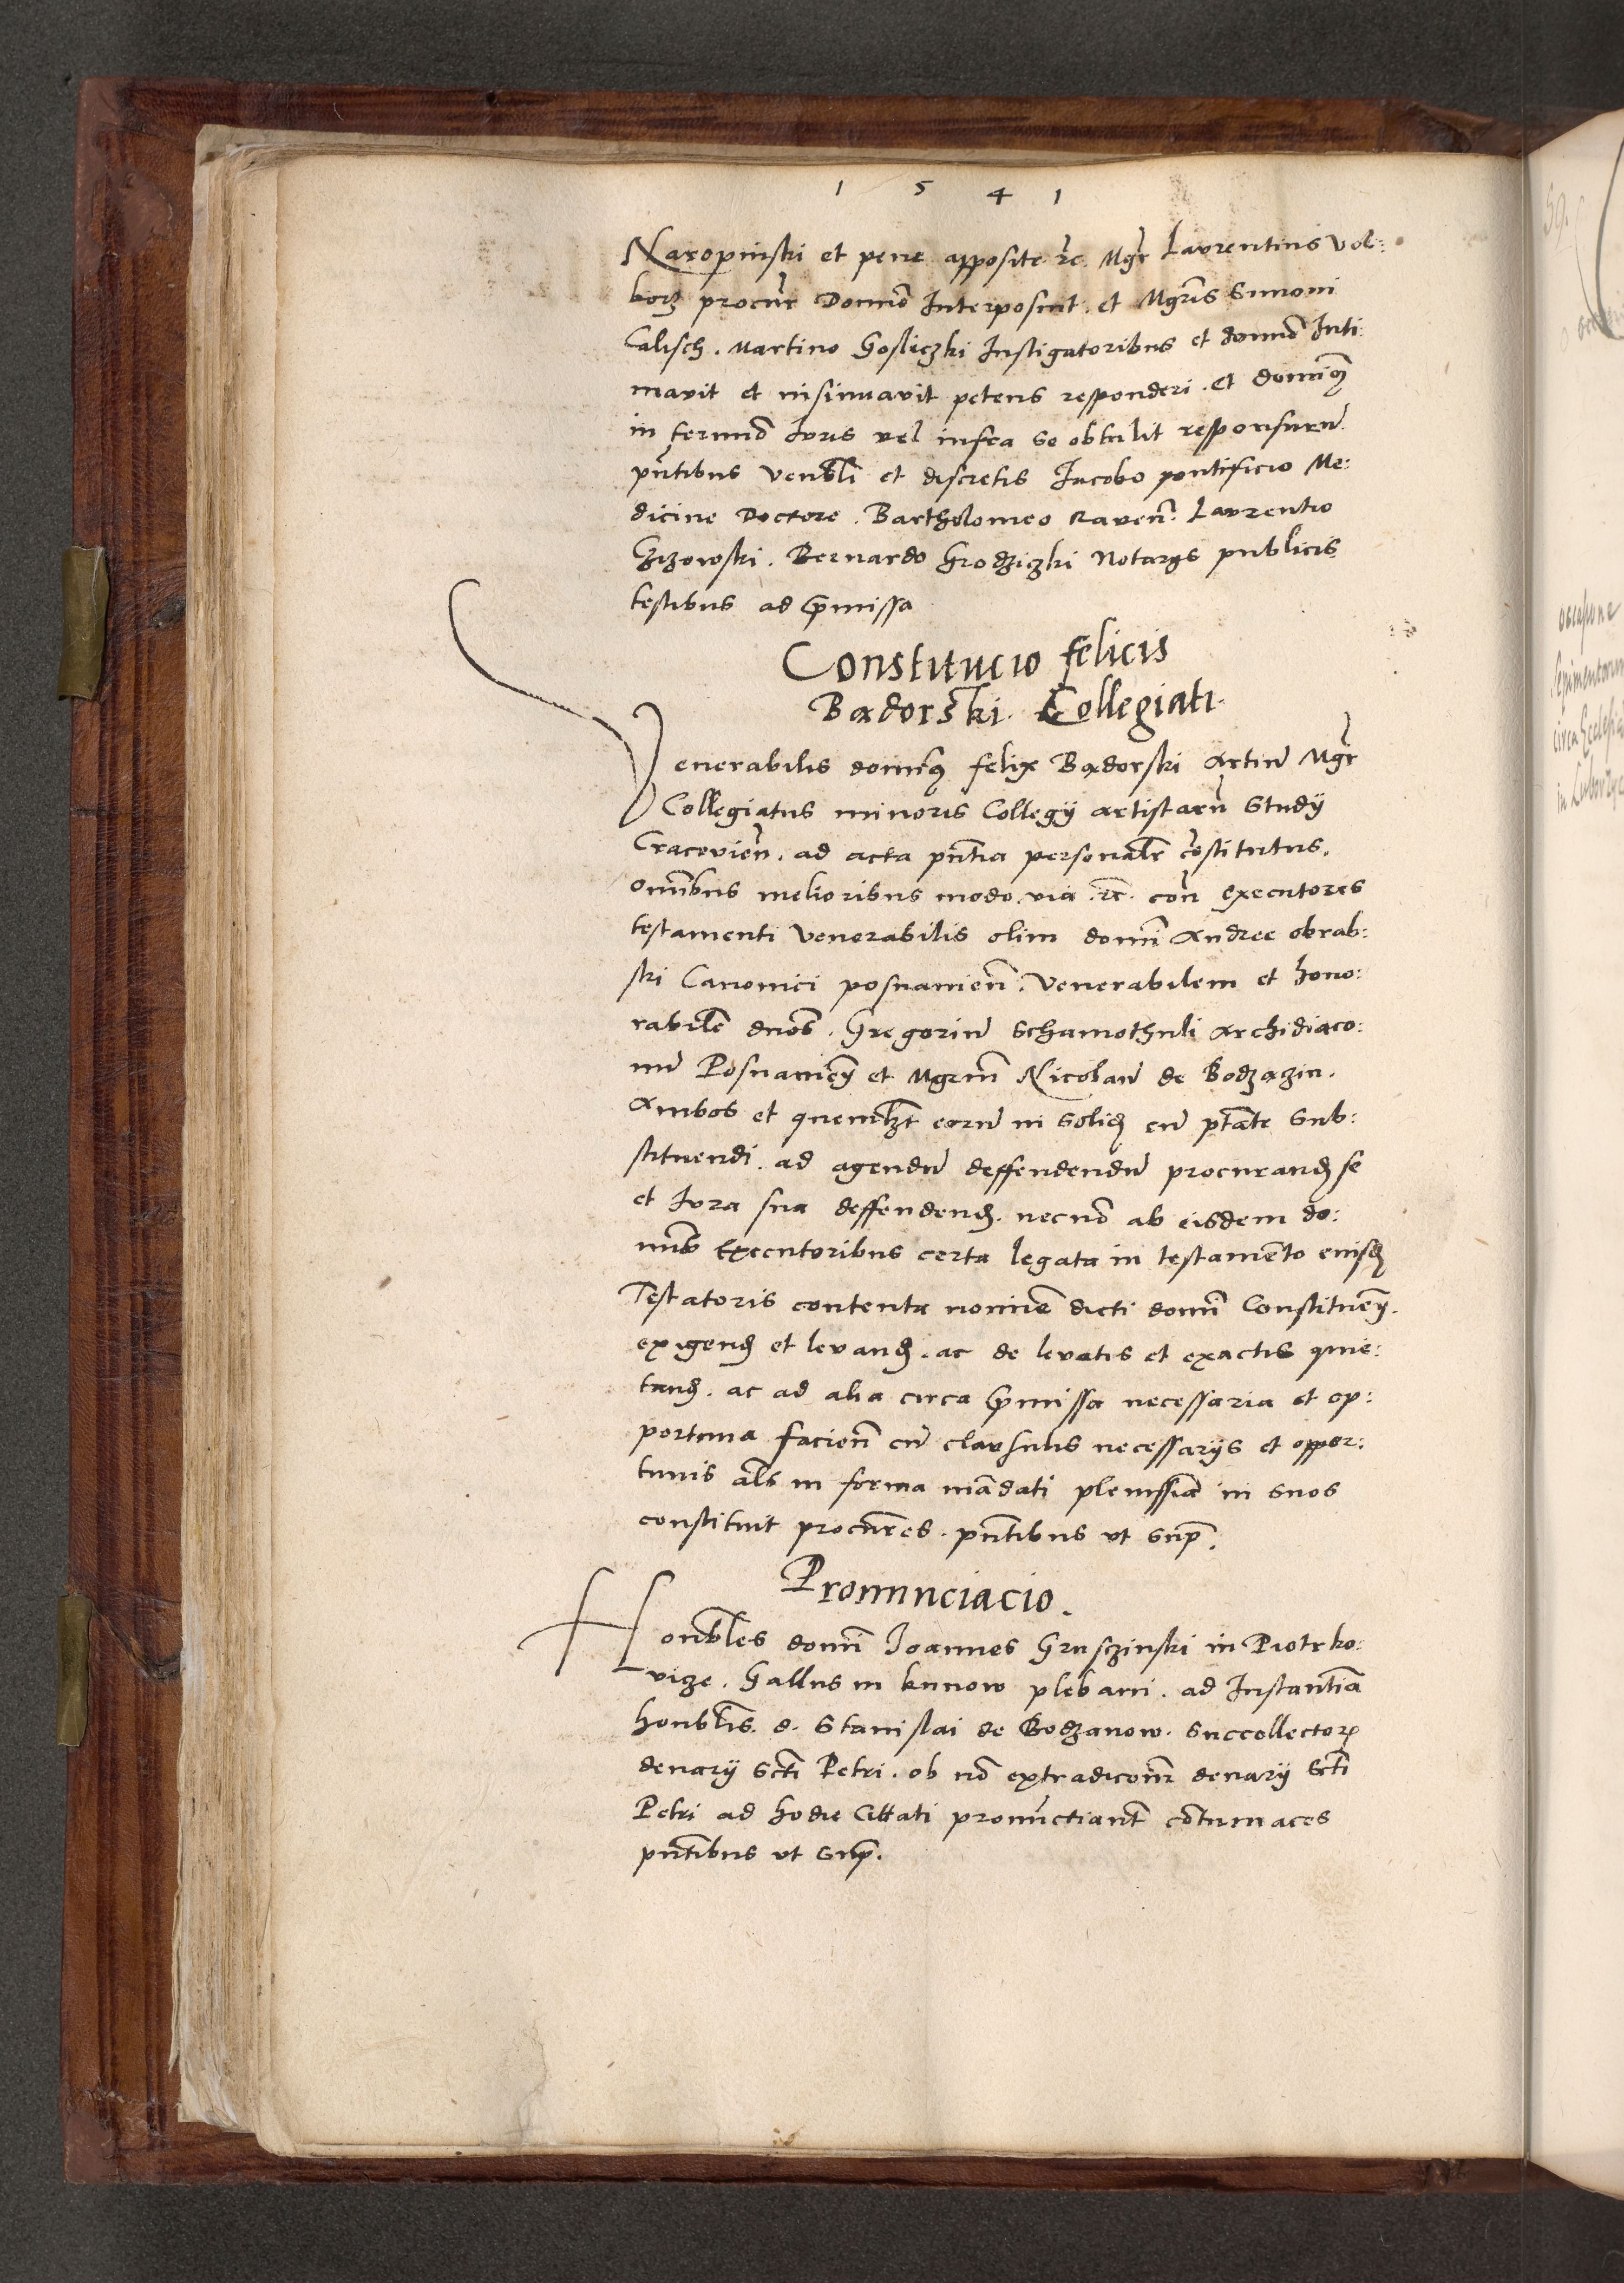 1 5 4 1
Naropinski et pene apposite rc. Mgr Laurentius Vol:
borz procur Domino Interposuit. et Mgris Simoni
Calisch. Martino Gosliczki Instigatoribus et domino Inti:
mavit et insinuavit petens responderi. et dominus
in termino Iuris vel infra se obtulit responsurum
pntibus Venbli et discretis Jacobo pontificio Me:
dicine Doctore. Bartholomeo Raven. Laurentio
Gizowski. Bernardo Grodziczki Notarys publicis
testibus ad pmissa
Constitucio felicis
Badorski. Collegiati.
Venerabilis dominus felix Badorski Artiu Mgr
Collegiatus minoris Collegij artistaru Studij
Cracovien. ad acta pntia personalr costitutus.
omibus melioribus modo. via .rc. con executores
testamenti Venerabilis olim domi Andree obrab:
ski Canonici posnanien. Venerabilem et hono:
rabile dnos. Gregoriu Schamothuli Archidiaco:
nu Posnanien et Mgrm Nicolau de Bodzaczin.
Ambos et quemlzt eoru in solid cu ptate Sub:
stituendi. ad agendu deffendendu procurand se
et Iura sua deffendend. necno ab eisdem do:
mis Executoribus certa legata in testamento eiusd
Testatoris contenta nomine dicti domi Constituen.
exigend et levand. ac de levatis et exactis quie:
tand. ac ad alia circa pmissa necessaria et op:
portuna facien cu clausulis necessarijs et oppor:
tunis als in forma madati plenissia in suos
constituit procures. pntibus ut sup.
Pronunciacio.
Honbles domi Joannes Gruszinski in Piotrko:
vicze. Gallus in kunow plebani. ad Instantia
honblis. d. Stanislai de Bodzanow. Succollector
denarij Scti Petri. ob no extradicoem denarij Scti
Petri ad hodie Citati pronunctiant cotumaces
pntibus ut sup.
occasione
circa Ecclesia